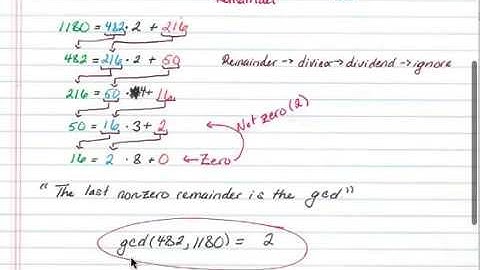 Remainder
1180 = 482 · 2 + 216
482 = 216 · 2 + 50
Remainder → divisor → dividend → ignore
216 = 50 · 4 + 16
50 = 16 · 3 + 2
Not zero (2)
16 = 2 · 8 + 0 ← Zero
"The last nonzero remainder is the gcd"
gcd(482, 1180) = 2